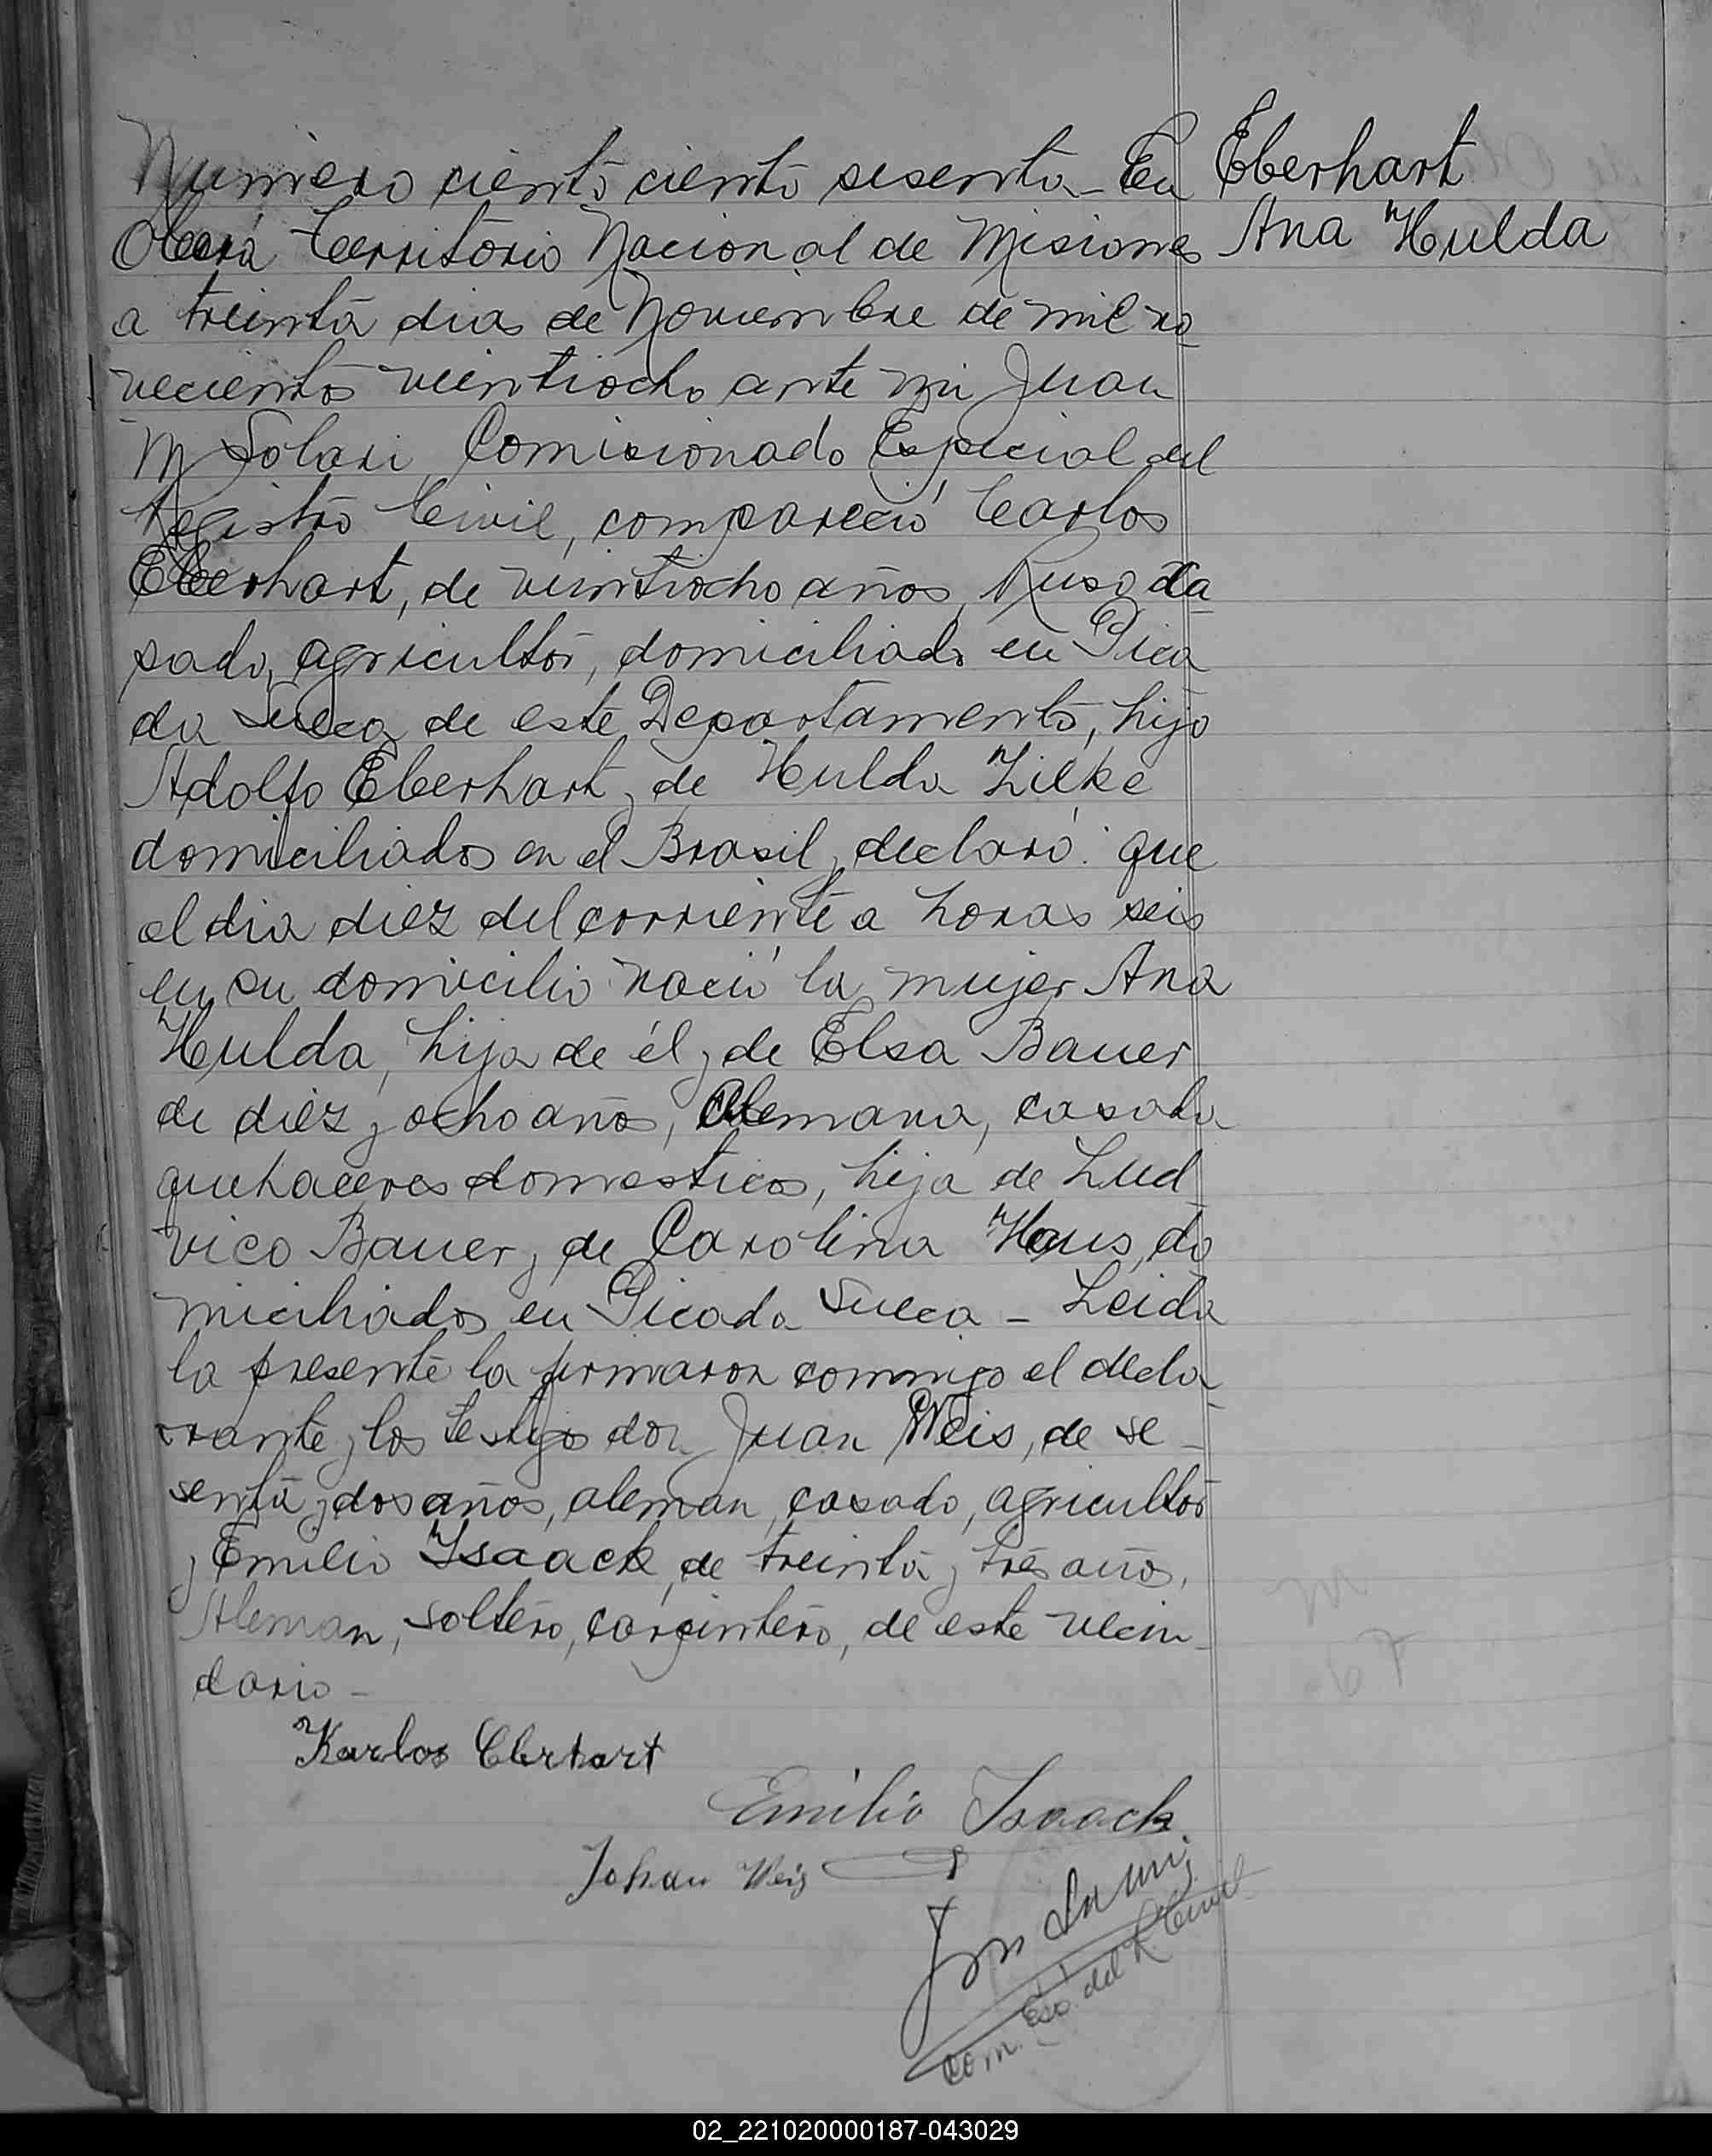 Numero ciento ciento sesenta - En
Oberá Territorio Nacional de Misiones
a treinta dias de Noviembre de mil no
vecientos veintiocho ante mi Juan
M Solari Comisionado Especial del
Registro Civil, compareció Carlos
Eberhart, de veintiocho años, Ruso, ca
sado, agricultor, domiciliado en Pica
da Sueca de este Departamento, hijo
Adolfo Eberhart y de Hulda Zilke
domiciliados en el Brasil, declaró: que
el dia diez del corriente a horas seis
en su domicilio nació la mujer Ana
Hulda, hija de él y de Elsa Bauer
de diez y ocho años, Alemana, casada
quehaceres domesticos, hija de Lud
vico Bauer y de Carolina Haus, do
miciliados en Picada Sueca - Leida
la presente la firmaron conmigo el decla
rante y los testigos don Juan Weis, de se
senta y dos años, aleman, casado, agricultor
y Emilio Isaack, de treinta y tres años,
Aleman, soltero, carpintero, de este vecin
dario -
Eberhart
Ana Hulda
Karlos Eberhart
Emilio Isaack
Johan Weis
Com. Esp. del R. Civil
02_221020000187-043029